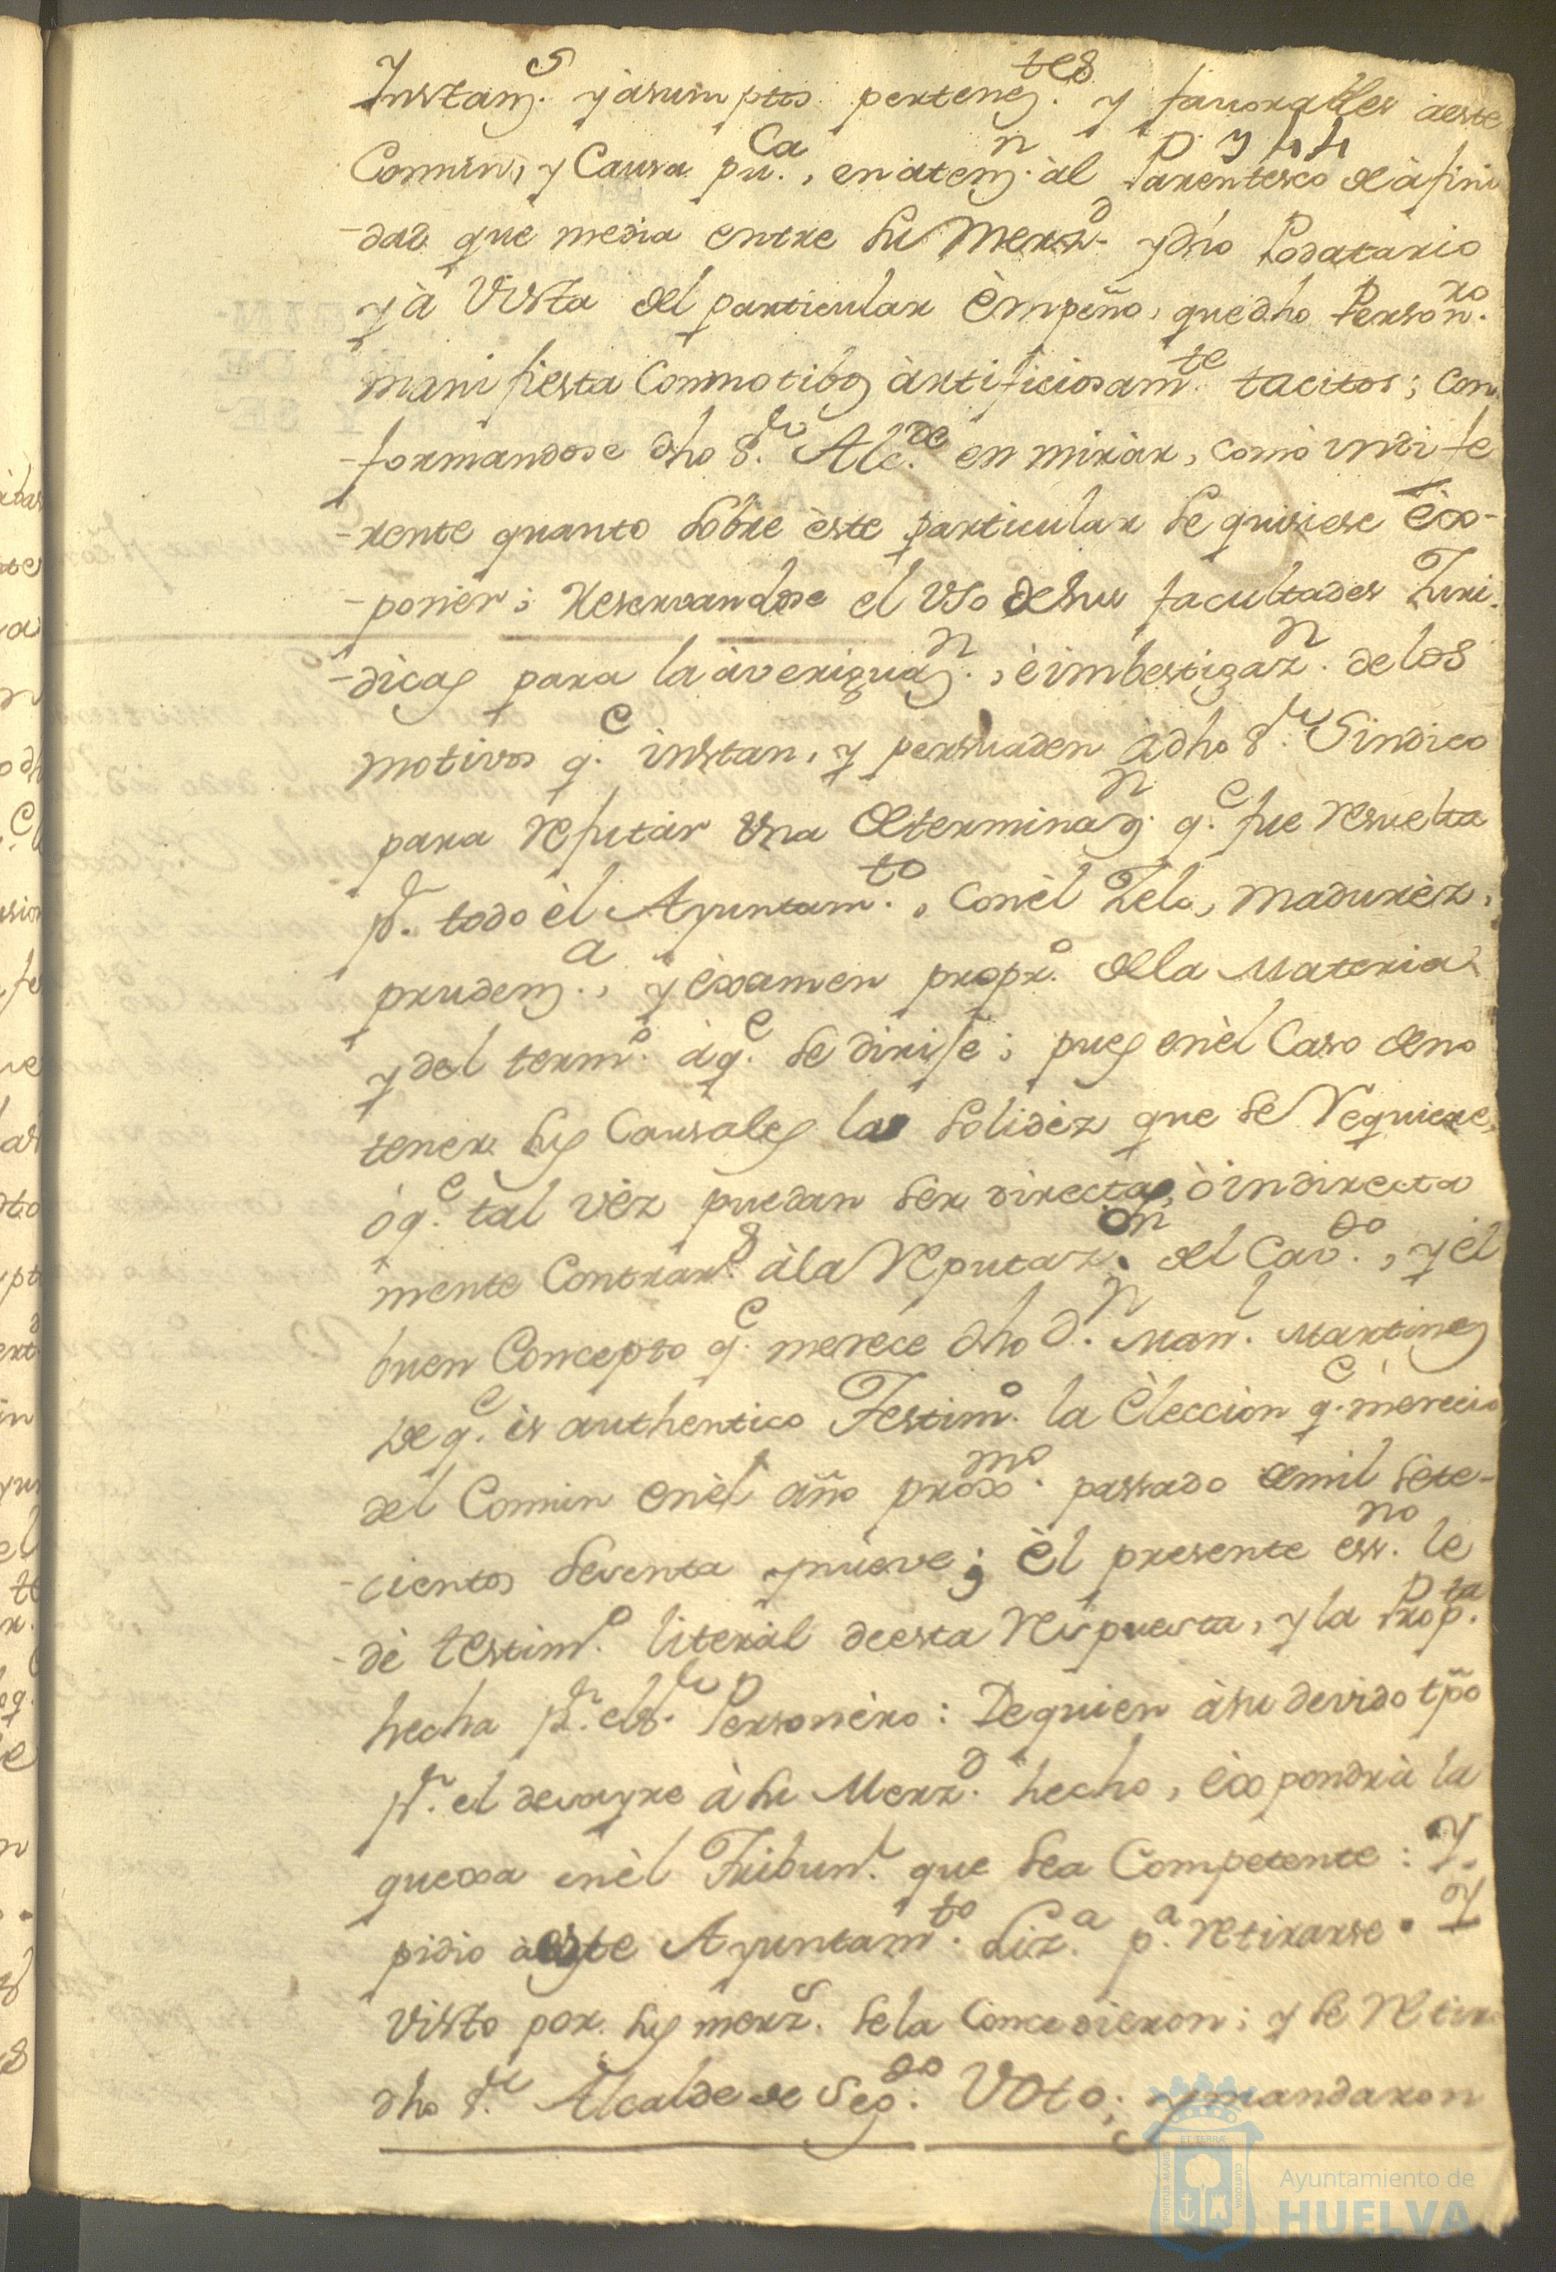 Instanz.s y asumptos pertenez.tes y favorables àeste
Comun, y Causa pu.ca, en atenz.n àl Parentesco de àfini
-dad que media entre su Merzd. y dho Podatario
y à Vista del particular èmpeño, que dho Person.ro
manifiesta Con motibos àrtificiosam.te tacitos; con
-formandose dho S.or Alc.de en miràr, como indife
-rente quanto sobre èste particular se quisiese èx-
-poner; Reservandose el Uso de sus facultades Juri-
-dicas para la àveriguaz.n, è imbestigaz.n de los
motivos q.e instan, y persuaden à dho S.or Sindico
para refutàr una determinaz.n q.e fue resuelta
p.r todo èl Ayuntam.to, con èl Zelo, madurèz,
prudenz.a, y èxamen propr.o de la Materia
y del term.o à q.e se dirije; pues en èl Caso de no
tener sus Causales la solidèz que se requiere,
ó q.e tal vèz puedan ser directa, ò indirecta
mente Contrar.s à la reputaz.on del Cav.do, y èl
buen Concepto q.e merece dho D.n Man.l Martinez
de q.e ès authentico Testim.o la èleccion q.e merecio
del Comun en èl año prox.mo passado de mil sete-
-cientos setenta y nueve; èl presente ess.no le
-dè testim.o literàl de esta respuesta, y la Prop.ta
hecha p.r el S.or Personèro: De quien à su devido tpõ
p.r el desayre à su Merz.d hecho, èxpondrà la
quexa en èl Tribun.l que sea Competente: Y.
pidio à este Ayuntam.to Liz.a p.a retirarse. Y
visto por sus merz.s se la Concedieron; y se retiro
dho S.or Alcalde de Seg.do Voto; y mandaron
Ayuntamiento de
HUELVA